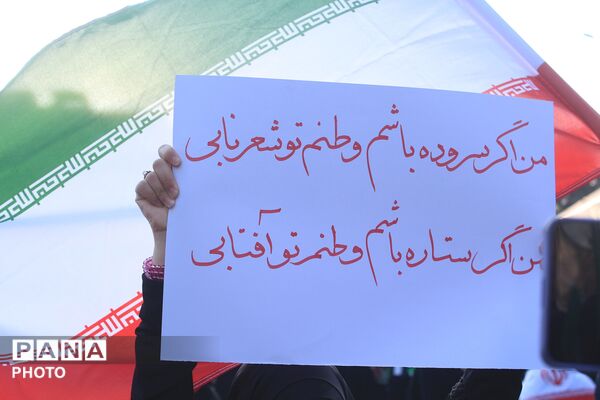 من اگر سروده باشم وطنم تو شعر نابی
من اگر ستاره باشم وطنم تو آفتابی
PANA
PHOTO